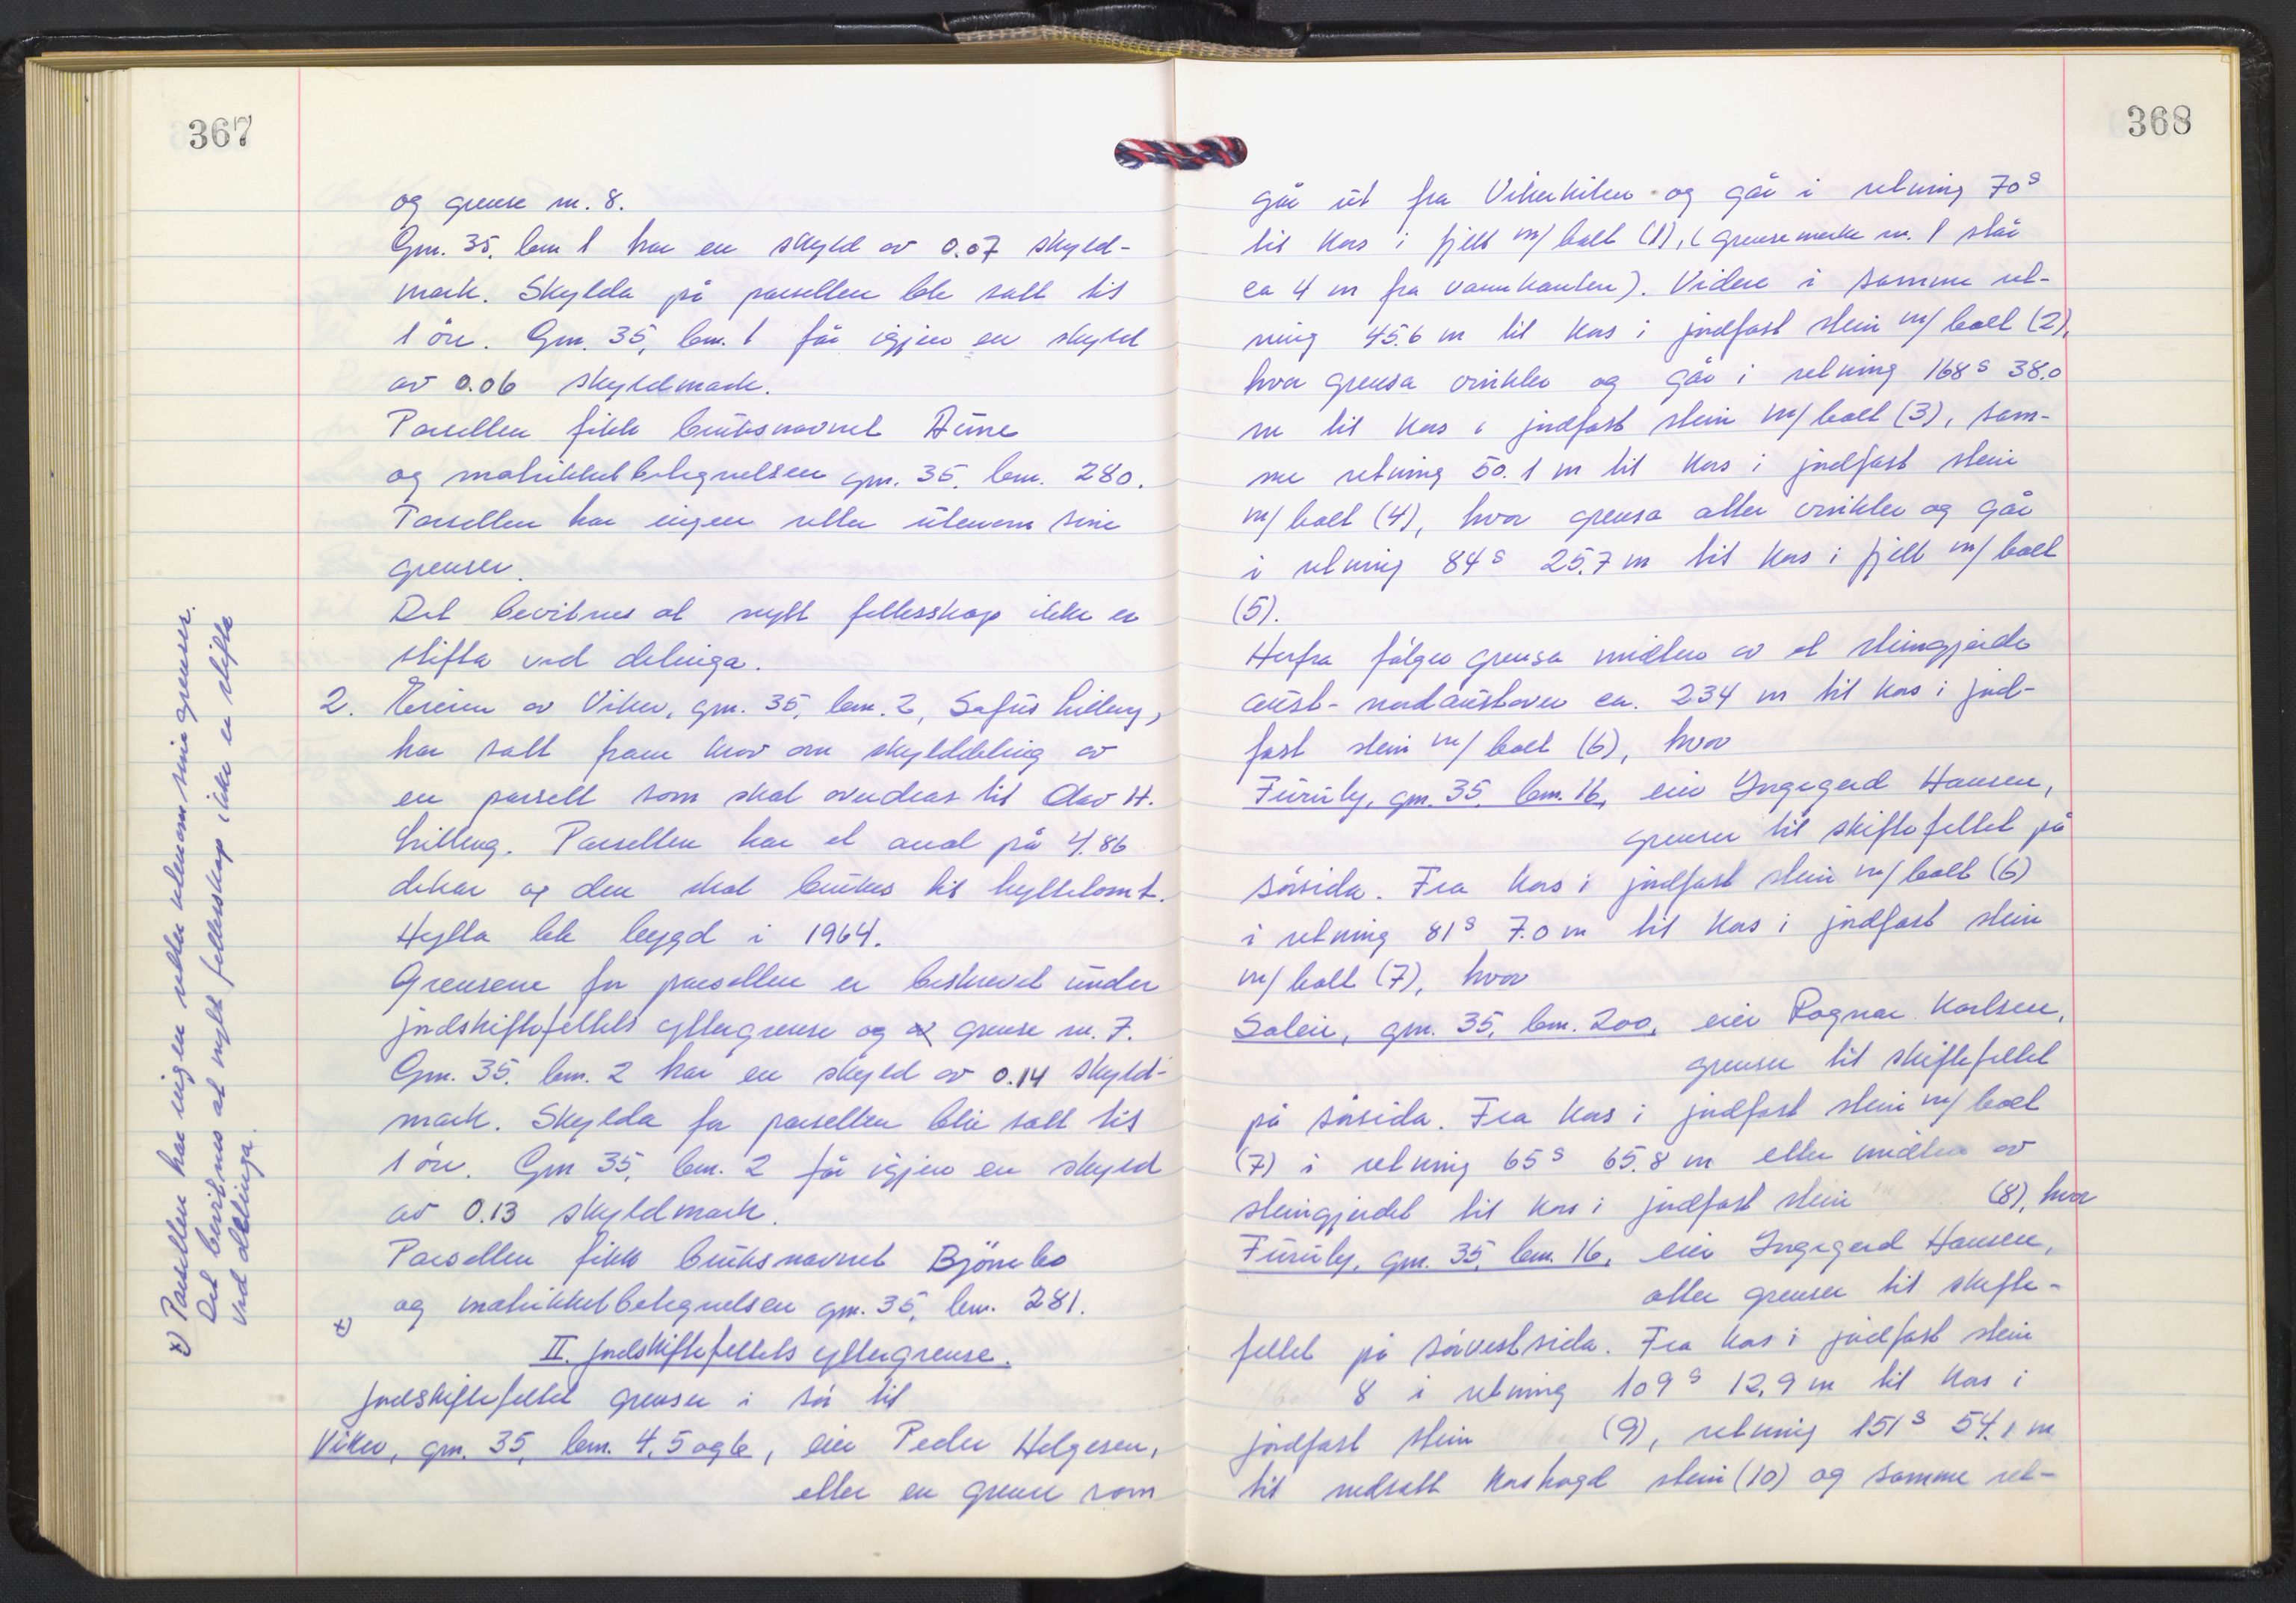 367
og grense nr. 8.
Gnr. 35, bnr 1 har en skyld av 0.07 skyld-
mark. Skylda på parsellen ble satt til
1 öre. Gnr. 35, bnr. 1 får igjen en skyld
av 0.06 skyldmark.
Parsellen fikk bruksnavnet Aune
og matrikkelbetegnelsen gnr. 35, bnr. 280.
Parsellen har ingen retter utenom sine
grenser.
Det bevitnes at nytt fellesskap ikke er
stifta ved delinga.
2. Eieren av Viker, gnr. 35, bnr. 2, Sofus Lilleng,
har satt fram krav om skylddeling av
en parsell som skal overdras til Olav H.
Lilleng. Parsellen har et areal på 4.86
dekar og den skal brukes til hyttetomt.
Hytta ble bygd i 1964.
Grensene for parsellen er beskrevet under
jordskiftefeltets yttergrense og grense nr. 7.
Gnr. 35, bnr. 2 har en skyld av 0.14 skyld-
mark. Skylda for parsellen blir satt til
1 öre. Gnr 35, bnr. 2 får igjen en skyld
av 0.13 skyldmark.
Parsellen fikk bruksnavnet Björnebo
og matrikkelbetegnelsen gnr. 35, bnr. 281.
x)
II. Jordskiftefeltets yttergrense.
Jordskiftefeltet grenser i sör til
Viker, gnr. 35, bnr. 4, 5 og 6, eier Peder Helgesen,
etter en grense som
x) Parsellen har ingen retter utenom sine grenser.
Det bevitnes at nytt fellesskap ikke er stifta
ved delinga.
368
går ut fra Vikerkilen og går i retning 70g
til kors i fjell m/bolt (1), (grensemerke nr. 1 står
ca 4 m fra vannkanten). Videre i samme ret-
ning 45.6 m til kors i jordfast stein m/bolt (2),
hvor grensa vinkler og går i retning 168g 38.0
m til kors i jordfast stein m/bolt (3), sam-
me retning 50.1 m til kors i jordfast stein
m/bolt (4), hvor grensa atter vinkler og går
i retning 84g 25.7 m til kors i fjell m/bolt
(5).
Herfra fölger grensa midten av et steingjerde
aust-nordaustover ca. 234 m til kors i jord-
fast stein m/bolt (6), hvor
Furuly, gnr. 35, bnr. 16, eier Ingegerd Hansen,
grenser til skiftefeltet på
sörsida. Fra kors i jordfast stein m/bolt (6)
i retning 81g 7.0 m til kors i jordfast stein
m/bolt (7), hvor
Soleie, gnr. 35, bnr. 200, eier Ragnar Karlsen,
grenser til skiftefeltet
på sörsida. Fra kors i jordfast stein m/bolt
(7) i retning 65g 65.8 m etter midten av
steingjerdet til kors i jordfast stein (8), hvor
Furuly, gnr. 35, bnr. 16, eier Ingegerd Hansen,
atter grenser til skifte-
feltet på sörvestsida. Fra kors i jordfast stein
8 i retning 109g 12.9 m til kors i
jordfast stein (9), retning 151g 54.1 m
til nedsatt korshogd stein (10) og samme ret-